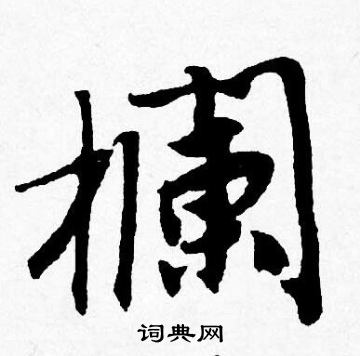 欄
词典网